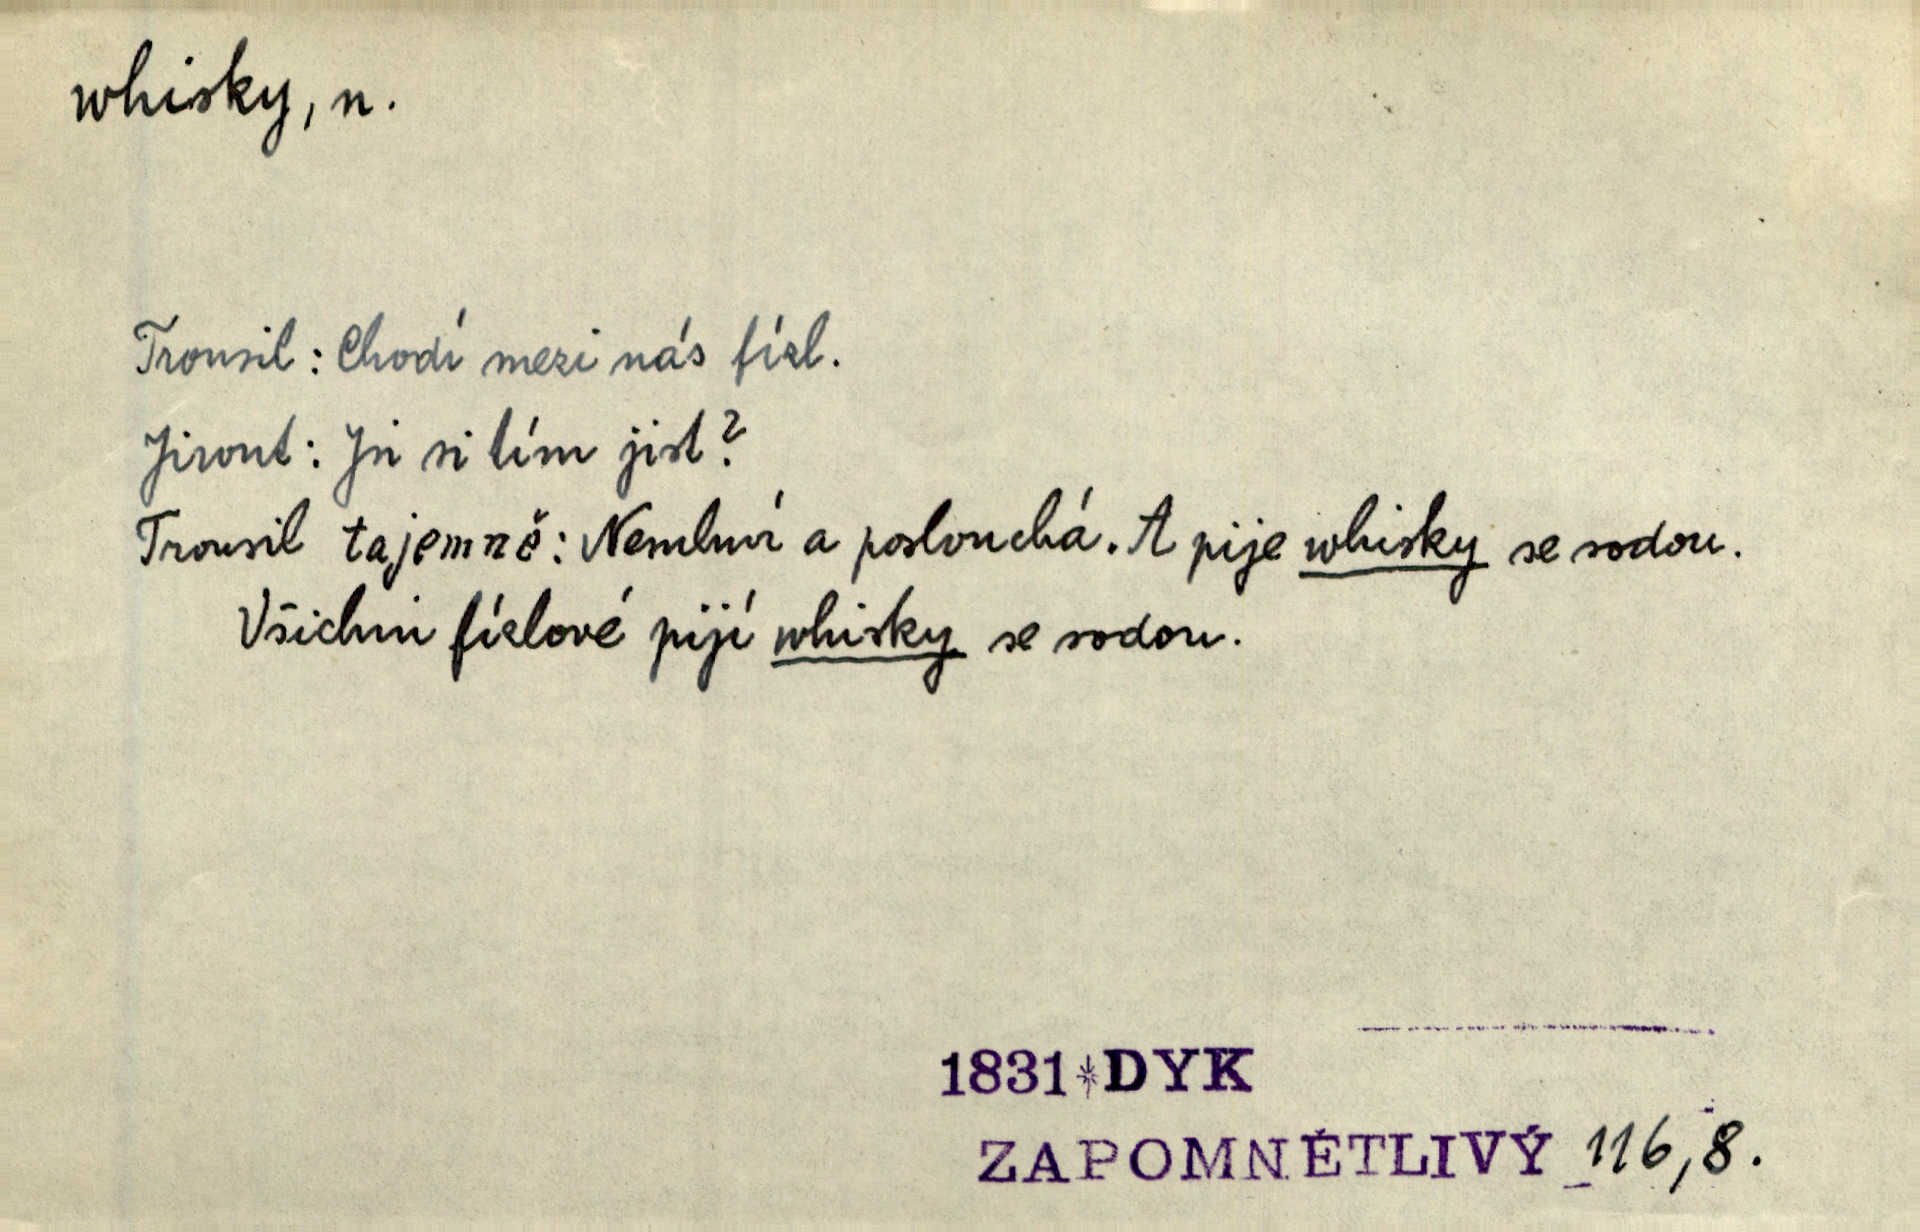 whisky, n.
Trousil: Chodí mezi nás fízl.
Jiront: Jsi si tím jist?
Trousil tajemně: Nemluví a poslouchá. A pije whisky se sodou.
Všichni fízlové pijí whisky se sodou.
1831*DYK
ZAPOMNĚTLIVÝ 116,8.